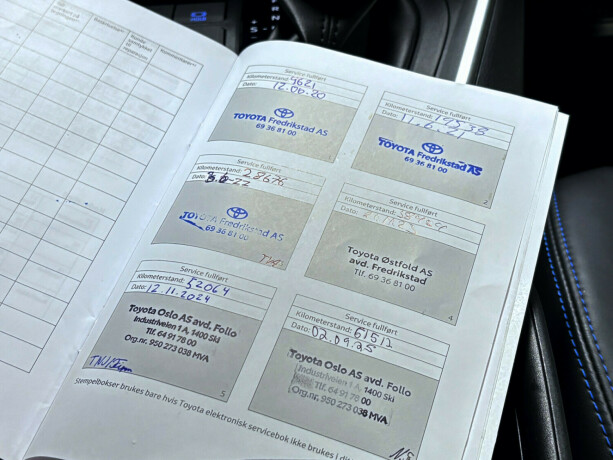 Service fullført
Kilometerstand: 9621
Dato: 12.06.20
TOYOTA Fredrikstad AS
69 36 81 00
Service fullført
Kilometerstand: 19538
Dato: 11.6.21
TOYOTA Fredrikstad AS
69 36 81 00
2
Service fullført
Kilometerstand: 28676
Dato:
TOYOTA Fredrikstad AS
69 36 81 00
Service fullført
Kilometerstand:
Dato:
Toyota Østfold AS
avd. Fredrikstad
Tlf. 69 36 81 00
4
Service fullført
Kilometerstand: 52064
Dato: 12.11.2024
Toyota Oslo AS avd. Follo
Industriveien 1 A, 1400 Ski
Tlf. 64 91 78 00
Org.nr. 950 273 038 MVA
5
Service fullført
Kilometerstand: 61512
Dato: 02.09.25
Toyota Oslo AS avd. Follo
Industriveien 1 A, 1400 Ski
Tlf. 64 91 78 00
Org.nr. 950 273 038 MVA
Stempelbokser brukes bare hvis Toyota elektronisk servicebok ikke brukes i